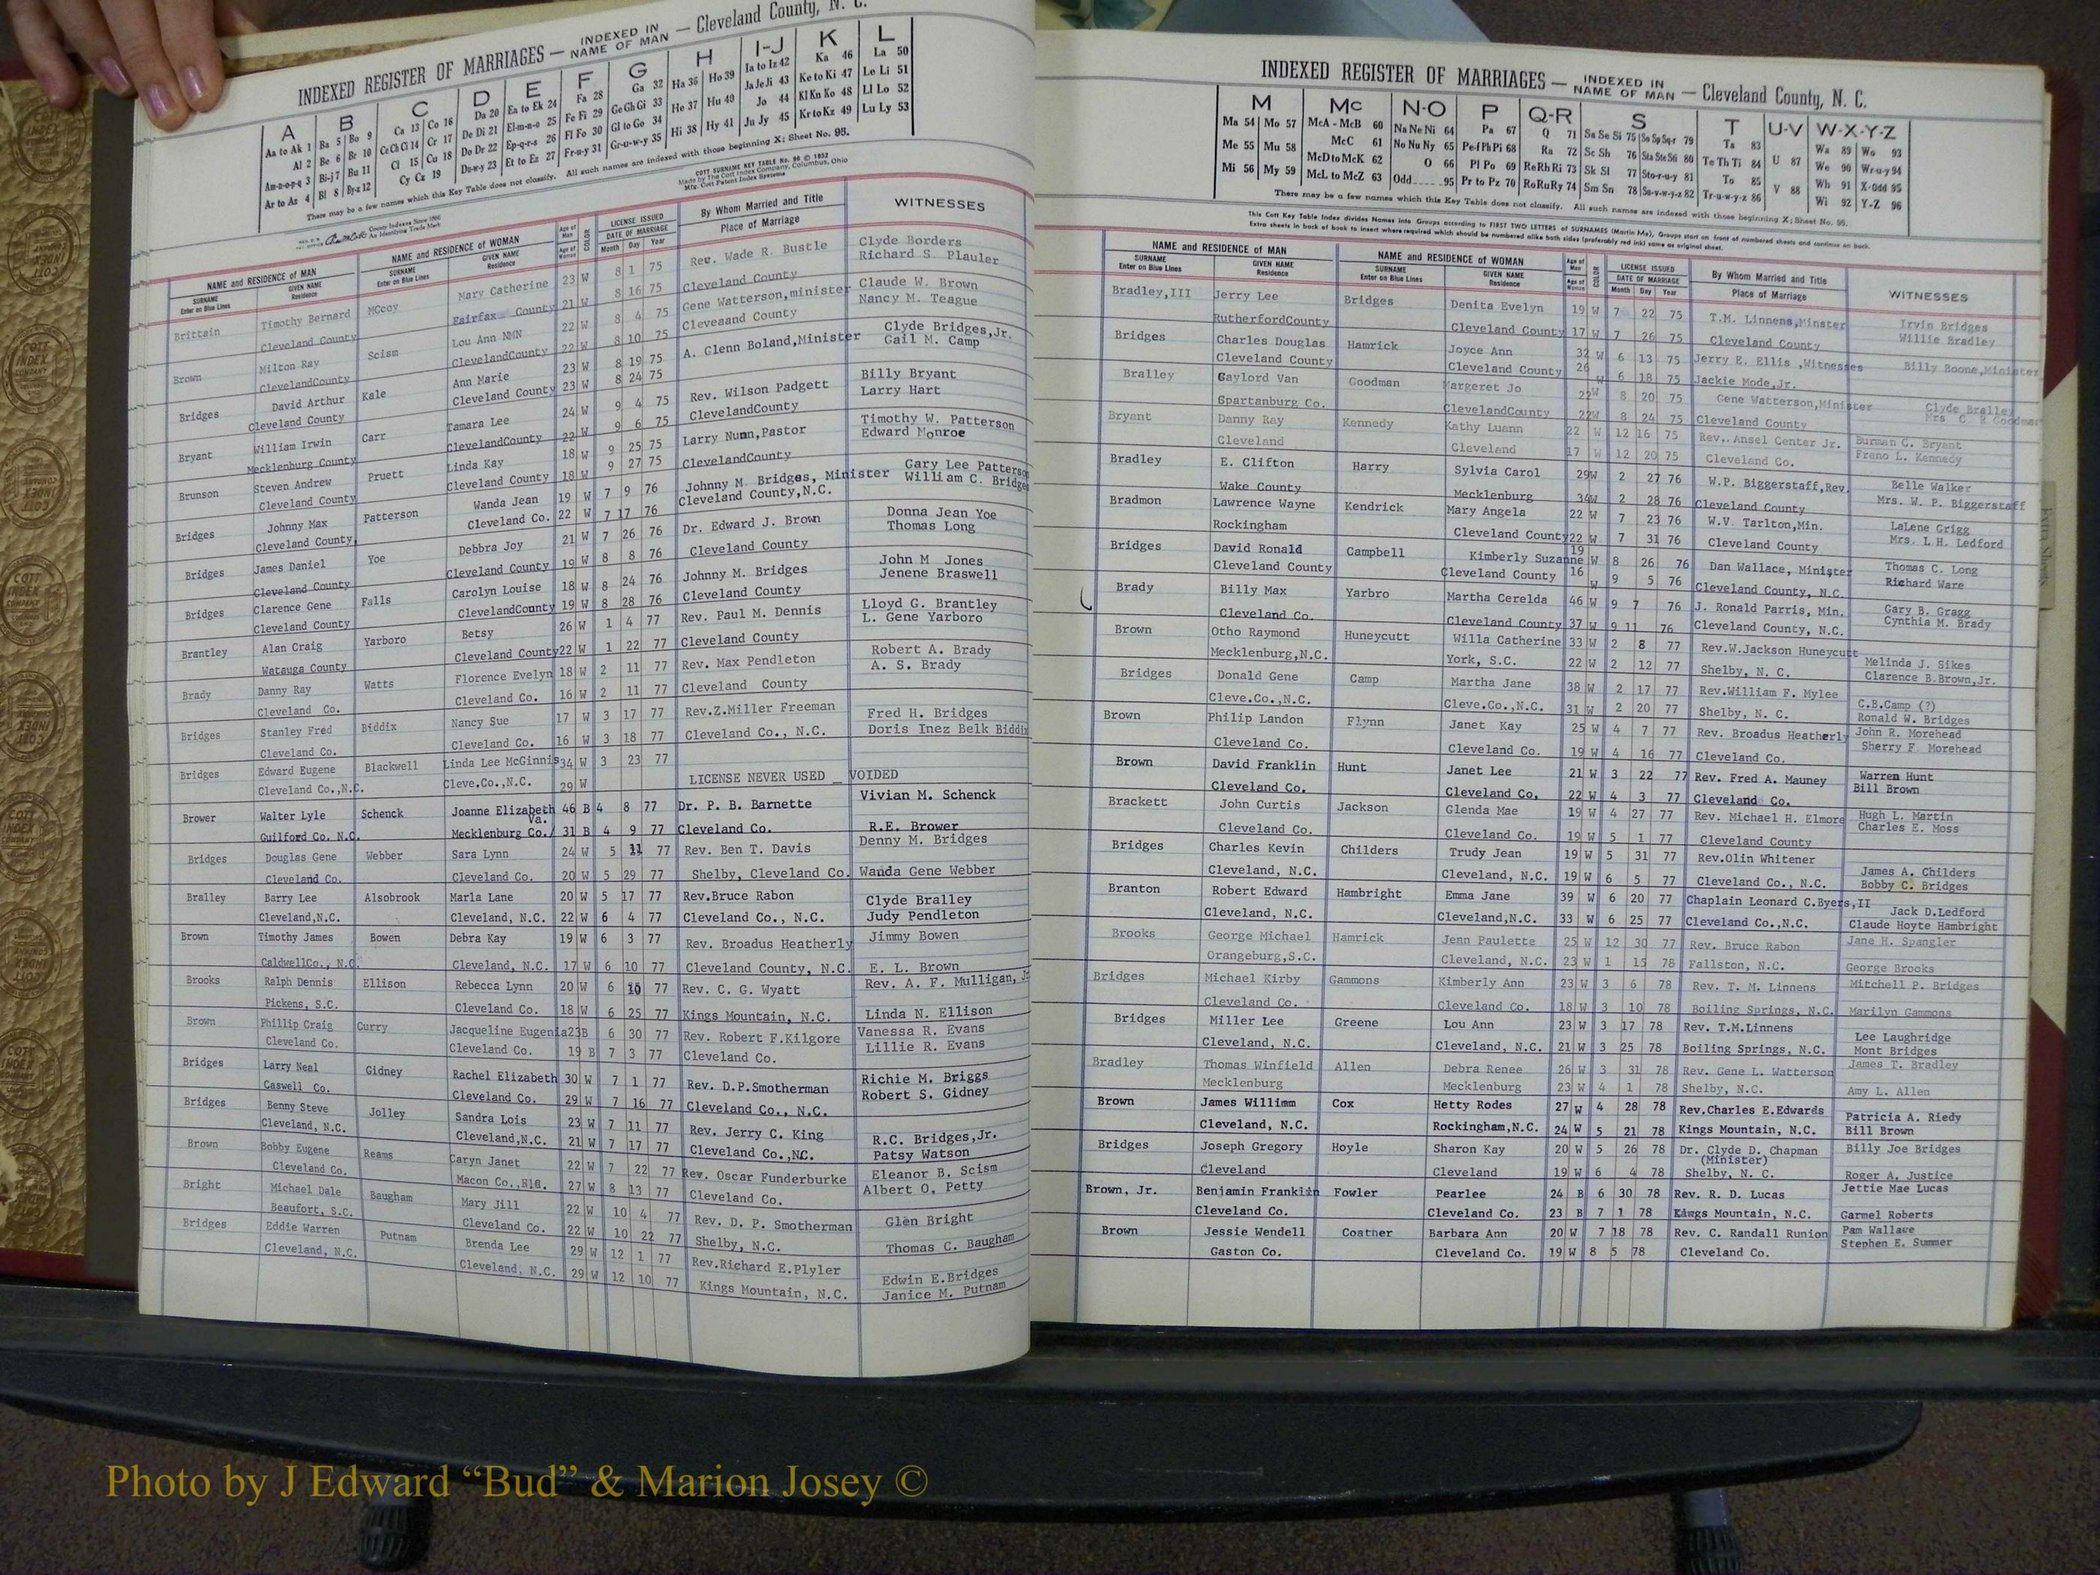 INDEXED REGISTER OF MARRIAGES — INDEXED IN NAME OF MAN — Cleveland County, N. C.
A B C D E F G H I-J K L
Aa to Ak 1 Ba 5 Bo 9 Ca 13 Co 16 Da 20 Ea to Ek 24 Fa 28 Ga 32 Ha 36 Ho 39 Ia to Iz 42 Ka 46 La 50
Al 2 Be 6 Br 10 Ce Ch Ci 14 Cr 17 De Di 21 El-m-n-o 25 Fe Fi 29 Ge Gh Gi 33 He 37 Hu 40 Ja Je Ji 43 Ke to Ki 47 Le Li 51
Am-n-o-p-q 3 Bi-j 7 Bu 11 Cl 15 Cu 18 Do Dr 22 Ep-q-r-s 26 Fl Fo 30 Gl to Go 34 Hi 38 Hy 41 Jo 44 Kl Kn Ko 48 Ll Lo 52
Ar to Az 4 Bl 8 By-z 12 Cy Cz 19 Du-w-y 23 Et to Ez 27 Fr-u-y 31 Gr-u-w-y 35 Ju Jy 45 Kr to Kz 49 Lu Ly 53
There may be a few names which this Key Table does not classify. All such names are indexed with those beginning X; Sheet No. 95.
COTT SURNAME KEY TABLE No. 96 © 1952
Made by The Cott Index Company, Columbus, Ohio
Mfg. Cott Patent Index Systems
County Indexes Since 1888
An Identifying Trade Mark
NAME and RESIDENCE of MAN NAME and RESIDENCE of WOMAN Age of Man Age of Woman COLOR LICENSE ISSUED By Whom Married and Title WITNESSES
SURNAME Enter on Blue Lines GIVEN NAME Residence SURNAME Enter on Blue Lines GIVEN NAME Residence DATE OF MARRIAGE Month Day Year Place of Marriage
Brittain Timothy Bernard MCcoy Mary Catherine 23 W 8 1 75 Rev. Wade R. Bustle Clyde Borders
Cleveland County Fairfax County 21 W 8 16 75 Cleveland County Richard S. Plauler
Brown Milton Ray Scism Lou Ann NMN 22 W 8 4 75 Gene Watterson,minister Claude W. Brown
ClevelandCounty ClevelandCounty 22 W 8 10 75 Cleveaand County Nancy M. Teague
Bridges David Arthur Kale Ann Marie 23 W 8 19 75 A. Glenn Boland,Minister Clyde Bridges,Jr.
Cleveland County Cleveland County 23 W 8 24 75 Gail M. Camp
Bryant William Irwin Carr Tamara Lee 24 W 9 4 75 Rev. Wilson Padgett Billy Bryant
Mecklenburg County ClevelandCounty 22 W 9 6 75 ClevelandCounty Larry Hart
Brunson Steven Andrew Pruett Linda Kay 18 W 9 25 75 Larry Nunn,Pastor Timothy W. Patterson
Cleveland County Cleveland County 18 W 9 27 75 ClevelandCounty Edward Monroe
Bridges Johnny Max Patterson Wanda Jean 19 W 7 9 76 Johnny M. Bridges, Minister Gary Lee Patterson
Cleveland County, Cleveland Co. 22 W 7 17 76 Cleveland County,N.C. William C. Bridges
Bridges James Daniel Yoe Debbra Joy 21 W 7 26 76 Dr. Edward J. Brown Donna Jean Yoe
Cleveland County Cleveland County 19 W 8 8 76 Cleveland County Thomas Long
Bridges Clarence Gene Falls Carolyn Louise 18 W 8 24 76 Johnny M. Bridges John M Jones
Cleveland County ClevelandCounty 19 W 8 28 76 Cleveland County Jenene Braswell
Brantley Alan Craig Yarboro Betsy 26 W 1 4 77 Rev. Paul M. Dennis Lloyd G. Brantley
Watauga County Cleveland County 22 W 1 22 77 Cleveland County L. Gene Yarboro
Brady Danny Ray Watts Florence Evelyn 18 W 2 11 77 Rev. Max Pendleton Robert A. Brady
Cleveland Co. Cleveland Co. 16 W 2 11 77 Cleveland County A. S. Brady
Bridges Stanley Fred Biddix Nancy Sue 17 W 3 17 77 Rev.Z.Miller Freeman Fred H. Bridges
Cleveland Co. Cleveland Co. 16 W 3 18 77 Cleveland Co., N.C. Doris Inez Belk Biddix
Bridges Edward Eugene Blackwell Linda Lee McGinnis 34 W 3 23 77
Cleveland Co.,N.C. Cleve.Co.,N.C. 29 W LICENSE NEVER USED _ VOIDED
Brower Walter Lyle Schenck Joanne Elizabeth 46 B 4 8 77 Dr. P. B. Barnette Vivian M. Schenck
Guilford Co. N.C. Mecklenburg Co./ Va. 31 B 4 9 77 Cleveland Co. R.E. Brower
Bridges Douglas Gene Webber Sara Lynn 24 W 5 11 77 Rev. Ben T. Davis Denny M. Bridges
Cleveland Co. Cleveland Co. 20 W 5 29 77 Shelby, Cleveland Co. Wanda Gene Webber
Bralley Barry Lee Alsobrook Marla Lane 20 W 5 17 77 Rev.Bruce Rabon Clyde Bralley
Cleveland,N.C. Cleveland, N.C. 22 W 6 4 77 Cleveland Co., N.C. Judy Pendleton
Brown Timothy James Bowen Debra Kay 19 W 6 3 77 Rev. Broadus Heatherly Jimmy Bowen
CaldwellCo., N.C. Cleveland, N.C. 17 W 6 10 77 Cleveland County, N.C. E. L. Brown
Brooks Ralph Dennis Ellison Rebecca Lynn 20 W 6 10 77 Rev. C. G. Wyatt Rev. A. F. Mulligan, Jr
Pickens, S.C. Cleveland Co. 18 W 6 25 77 Kings Mountain, N.C. Linda N. Ellison
Brown Phillip Craig Curry Jacqueline Eugenia 23 B 6 30 77 Rev. Robert F.Kilgore Vanessa R. Evans
Cleveland Co. Cleveland Co. 19 B 7 3 77 Cleveland Co. Lillie R. Evans
Bridges Larry Neal Gidney Rachel Elizabeth 30 W 7 1 77 Rev. D.P.Smotherman Richie M. Briggs
Caswell Co. Cleveland Co. 29 W 7 16 77 Cleveland Co., N.C. Robert S. Gidney
Bridges Benny Steve Jolley Sandra Lois 23 W 7 11 77 Rev. Jerry C. King R.C. Bridges,Jr.
Cleveland, N.C. Cleveland,N.C. 21 W 7 17 77 Cleveland Co.,NC. Patsy Watson
Brown Bobby Eugene Reams Caryn Janet 22 W 7 22 77 Rev. Oscar Funderburke Eleanor B. Scism
Cleveland Co. Macon Co., 27 W 8 13 77 Cleveland Co. Albert O. Petty
Bright Michael Dale Baugham Mary Jill 22 W 10 4 77 Rev. D. P. Smotherman Glen Bright
Beaufort, S.C. Cleveland Co. 22 W 10 22 77 Shelby, N.C. Thomas C. Baugham
Bridges Eddie Warren Putnam Brenda Lee 29 W 12 1 77 Rev.Richard E.Plyler Edwin E.Bridges
Cleveland, N.C. Cleveland, N.C. 29 W 12 10 77 Kings Mountain, N.C. Janice M. Putnam
INDEXED REGISTER OF MARRIAGES — INDEXED IN NAME OF MAN — Cleveland County, N. C.
M Mc N-O P Q-R S T U-V W-X-Y-Z
Ma 54 Mo 57 McA - McB 60 Na Ne Ni 64 Pa 67 Q 71 Sa Se Si 75 So Sp Sq-r 79 Ta 83 U 87 Wa 89 Wo 93
Me 55 Mu 58 McC 61 No Nu Ny 65 Pe-f Ph Pi 68 Ra 72 Sc Sh 76 Sta Ste Sti 80 Te Th Ti 84 V 88 We 90 Wr-u-y 94
Mi 56 My 59 McD to McK 62 O 66 Pl Po 69 Re Rh Ri 73 Sk Sl 77 Sto-r-u-y 81 To 85 Wh 91 X-Odd 95
McL to McZ 63 Odd 95 Pr to Pz 70 Ro Ru Ry 74 Sm Sn 78 Su-v-w-y-z 82 Tr-u-w-y-z 86 Wi 92 Y-Z 96
There may be a few names which this Key Table does not classify. All such names are indexed with those beginning X; Sheet No. 95.
This Cott Key Table Index divides Names into Groups according to FIRST TWO LETTERS of SURNAMES (Martin Ma), Groups start on front of numbered sheets and continue on back.
Extra sheets in back of book to insert where required which should be numbered alike both sides (preferably red ink) same as original sheet.
NAME and RESIDENCE of MAN NAME and RESIDENCE of WOMAN Age of Man Age of Woman COLOR LICENSE ISSUED By Whom Married and Title WITNESSES
SURNAME Enter on Blue Lines GIVEN NAME Residence SURNAME Enter on Blue Lines GIVEN NAME Residence DATE OF MARRIAGE Month Day Year Place of Marriage
Bradley,III Jerry Lee Bridges Denita Evelyn 19 W 7 22 75 T.M. Linnens,Minster Irvin Bridges
RutherfordCounty Cleveland County 17 W 7 26 75 Cleveland County Willie Bradley
Bridges Charles Douglas Hamrick Joyce Ann 32 W 6 13 75 Jerry E. Ellis ,Witnesses Billy Boone,Minister
Cleveland County Cleveland County 26 W 6 18 75 Jackie Mode,Jr.
Bralley Gaylord Van Goodman Margeret Jo 22 W 8 20 75 Gene Watterson,Minister Clyde Bralley
Spartanburg Co. ClevelandCounty 22 W 8 24 75 Cleveland County Mrs C. R Goodman
Bryant Danny Ray Kennedy Kathy Luann 22 W 12 16 75 Rev. Ansel Center Jr. Burman C. Bryant
Cleveland Cleveland 17 W 12 20 75 Cleveland Co. Freno L. Kennedy
Bradley E. Clifton Harry Sylvia Carol 29 W 2 27 76 W.P. Biggerstaff,Rev. Belle Walker
Wake County Mecklenburg 34 W 2 28 76 Cleveland County Mrs. W. P. Biggerstaff
Bradmon Lawrence Wayne Kendrick Mary Angela 22 W 7 23 76 W.V. Tarlton,Min. LaLene Grigg
Rockingham Cleveland County 22 W 7 31 76 Cleveland County Mrs. L.H. Ledford
Bridges David Ronald Campbell Kimberly Suzanne 19 W 8 26 76 Dan Wallace, Minister Thomas C. Long
Cleveland County Cleveland County 16 W 9 5 76 Cleveland County, N.C. Richard Ware
Brady Billy Max Yarbro Martha Cerelda 46 W 9 7 76 J. Ronald Parris, Min. Gary B. Gragg
Cleveland Co. Cleveland County 37 W 9 11 76 Cleveland County, N.C. Cynthia M. Brady
Brown Otho Raymond Huneycutt Willa Catherine 33 W 2 8 77 Rev.W.Jackson Huneycutt Melinda J. Sikes
Mecklenburg,N.C. York, S.C. 22 W 2 12 77 Shelby, N. C. Clarence B.Brown,Jr.
Bridges Donald Gene Camp Martha Jane 38 W 2 17 77 Rev.William F. Mylee C.B.Camp (?)
Cleve.Co.,N.C. Cleve.Co.,N.C. 31 W 2 20 77 Shelby, N. C. Ronald W. Bridges
Brown Philip Landon Flynn Janet Kay 25 W 4 7 77 Rev. Broadus Heatherly John R. Morehead
Cleveland Co. Cleveland Co. 19 W 4 16 77 Cleveland Co. Sherry F Morehead
Brown David Franklin Hunt Janet Lee 21 W 3 22 77 Rev. Fred A. Mauney Warren Hunt
Cleveland Co. Cleveland Co. 22 W 4 3 77 Cleveland Co. Bill Brown
Brackett John Curtis Jackson Glenda Mae 19 W 4 27 77 Rev. Michael H. Elmore Hugh L. Martin
Cleveland Co. Cleveland Co. 19 W 5 1 77 Cleveland County Charles E. Moss
Bridges Charles Kevin Childers Trudy Jean 19 W 5 31 77 Rev.Olin Whitener James A. Childers
Cleveland, N.C. Cleveland, N.C. 19 W 6 5 77 Cleveland Co., N.C. Bobby C. Bridges
Branton Robert Edward Hambright Emma Jane 39 W 6 20 77 Chaplain Leonard C.Byers,II Jack D.Ledford
Cleveland, N.C. Cleveland,N.C. 33 W 6 25 77 Cleveland Co.,N.C. Claude Hoyte Hambright
Brooks George Michael Hamrick Jenn Paulette 25 W 12 30 77 Rev. Bruce Rabon Jane H. Spangler
Orangeburg,S.C. Cleveland, N.C. 23 W 1 15 78 Fallston, N.C. George Brooks
Bridges Michael Kirby Gammons Kimberly Ann 23 W 3 6 78 Rev. T. M. Linnens Mitchell P. Bridges
Cleveland Co. Cleveland Co. 18 W 3 10 78 Boiling Springs, N.C. Marilyn Gammons
Bridges Miller Lee Greene Lou Ann 23 W 3 17 78 Rev. T.M.Linnens Lee Laughridge
Cleveland, N.C. Cleveland, N.C. 21 W 3 25 78 Boiling Springs, N.C. Mont Bridges
Bradley Thomas Winfield Allen Debra Renee 26 W 3 31 78 Rev. Gene L. Watterson James T. Bradley
Mecklenburg Mecklenburg 23 W 4 1 78 Shelby, N.C. Amy L. Allen
Brown James Willimm Cox Hetty Rodes 27 W 4 28 78 Rev.Charles E.Edwards Patricia A. Riedy
Cleveland, N.C. Rockingham,N.C. 24 W 5 21 78 Kings Mountain, N.C. Bill Brown
Bridges Joseph Gregory Hoyle Sharon Kay 20 W 5 26 78 Dr. Clyde D. Chapman (Minister) Billy Joe Bridges
Cleveland Cleveland 19 W 6 4 78 Shelby, N. C. Roger A. Justice
Brown, Jr. Benjamin Franklin Fowler Pearlee 24 B 6 30 78 Rev. R. D. Lucas Jettie Mae Lucas
Cleveland Co. Cleveland Co. 23 B 7 1 78 Kings Mountain, N.C. Garmel Roberts
Brown Jessie Wendell Coather Barbara Ann 20 W 7 18 78 Rev. C. Randall Runion Pam Wallace
Gaston Co. Cleveland Co. 19 W 8 5 78 Cleveland Co. Stephen E. Summer
Photo by J Edward “Bud” & Marion Josey ©